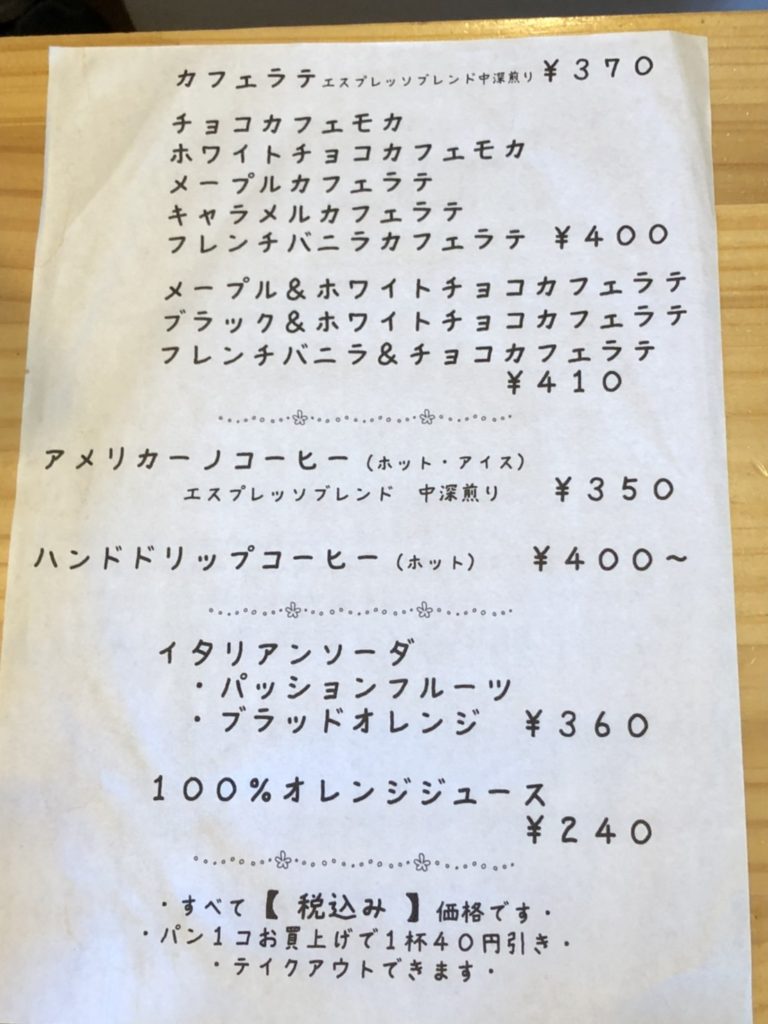 カフェラテ エスプレッソブレンド中深煎り ¥370
チョコカフェモカ
ホワイトチョコカフェモカ
メープルカフェラテ
キャラメルカフェラテ
フレンチバニラカフェラテ ¥400
メープル&ホワイトチョコカフェラテ
ブラック&ホワイトチョコカフェラテ
フレンチバニラ&チョコカフェラテ
¥410
アメリカーノコーヒー(ホット・アイス)
エスプレッソブレンド 中深煎り ¥350
ハンドドリップコーヒー(ホット) ¥400~
イタリアンソーダ
・パッションフルーツ
・ブラッドオレンジ ¥360
100%オレンジジュース
¥240
・すべて【 税込み 】価格です・
・パン1コお買上げで1杯40円引き・
・テイクアウトできます・